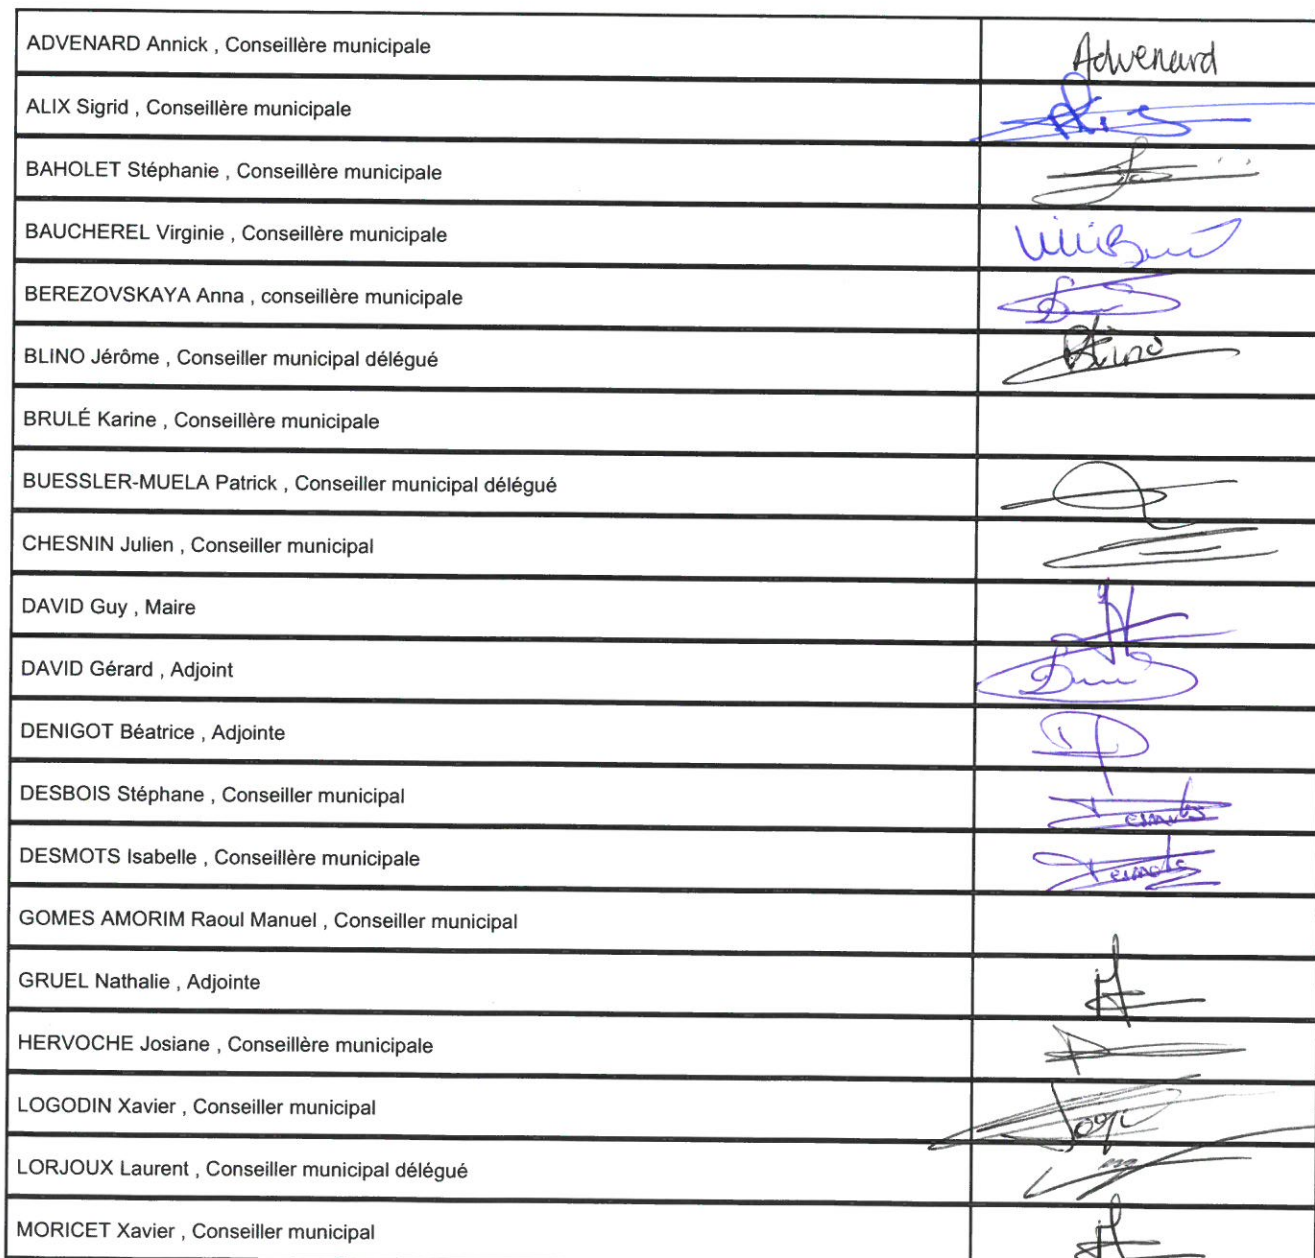 ADVENARD Annick , Conseillère municipale
Advenard
ALIX Sigrid , Conseillère municipale
BAHOLET Stéphanie , Conseillère municipale
BAUCHEREL Virginie , Conseillère municipale
BEREZOVSKAYA Anna , conseillère municipale
BLINO Jérôme , Conseiller municipal délégué
Blino
BRULÉ Karine , Conseillère municipale
BUESSLER-MUELA Patrick , Conseiller municipal délégué
CHESNIN Julien , Conseiller municipal
DAVID Guy , Maire
DAVID Gérard , Adjoint
DENIGOT Béatrice , Adjointe
DESBOIS Stéphane , Conseiller municipal
DESMOTS Isabelle , Conseillère municipale
GOMES AMORIM Raoul Manuel , Conseiller municipal
GRUEL Nathalie , Adjointe
HERVOCHE Josiane , Conseillère municipale
LOGODIN Xavier , Conseiller municipal
LORJOUX Laurent , Conseiller municipal délégué
MORICET Xavier , Conseiller municipal